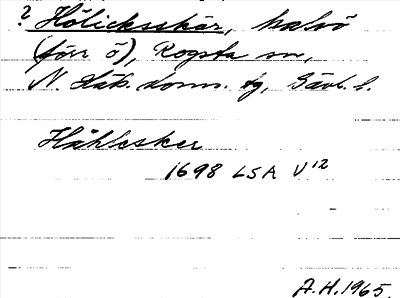 ? Hölicksskär, halvö
(förr ö), Rogsta sn,
N. Häls. doms. tg, Gävl. l.
Håhlesker
1698 LSA V12
A.H. 1965.